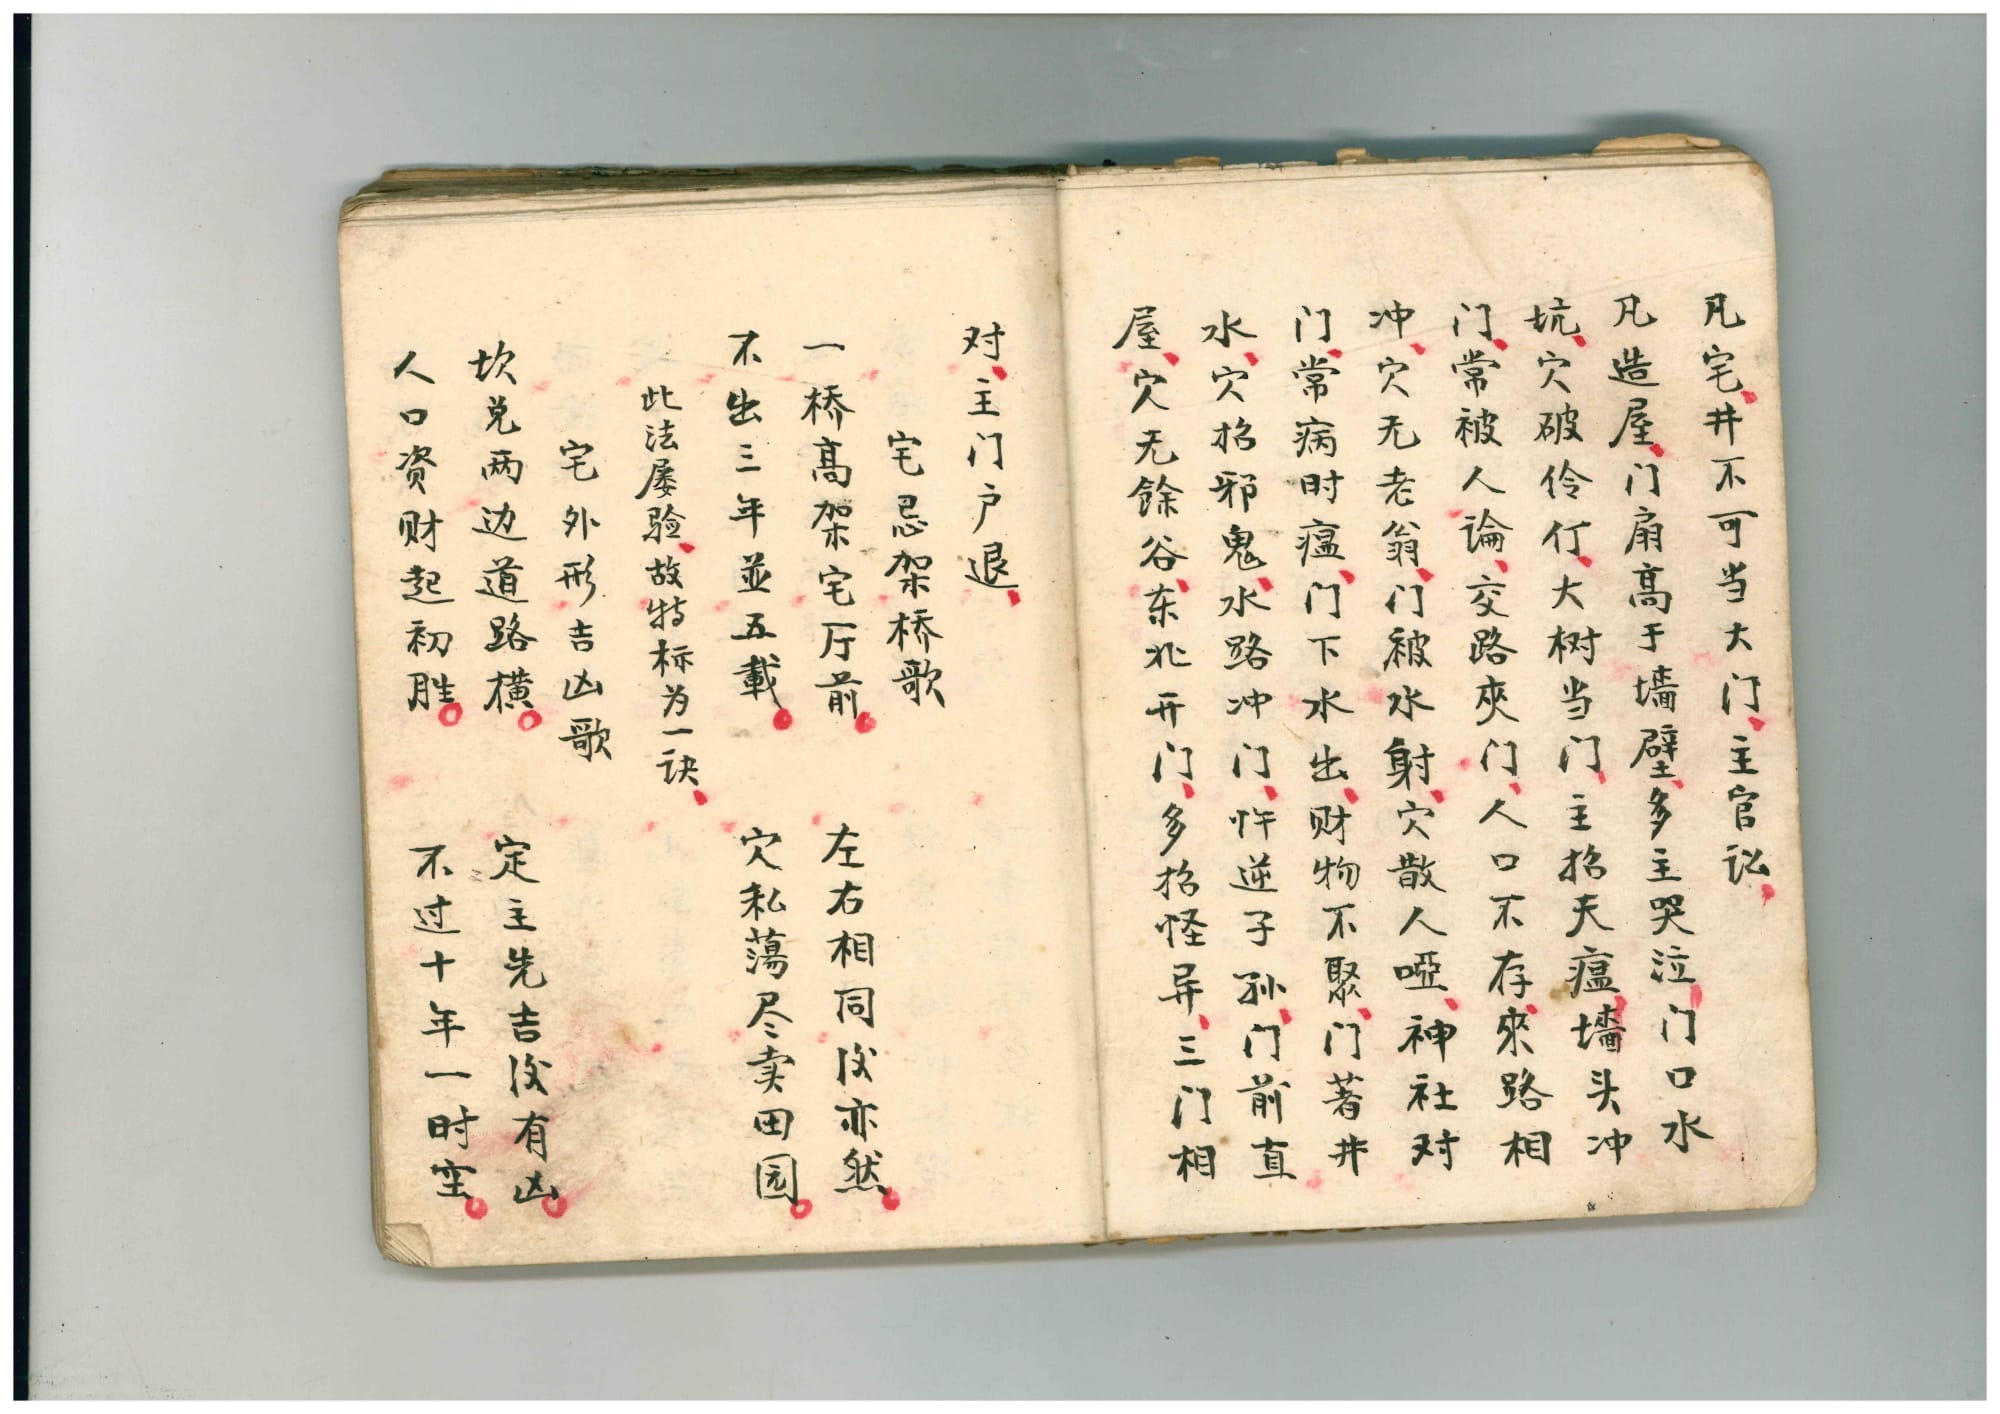 凡宅、井不可当大门、主官讼、
凡造屋、门扇高于墙壁、多主哭泣、门口水
坑、穴破伶仃、大树当门、主招天瘟、墙头冲
门、常被人論、交路夾门、人口不存、來路相
冲、穴无老翁、门被水射、穴散人哑、神社对
门、常病时瘟、门下水出、财物不聚、门著井
水、穴招邪鬼、水路冲门、忤逆子孙、门前直
屋、穴无餘谷、东北开门、多招怪异、三门相
对、主门户退、
宅忌架桥歌
一桥高架宅厅前。左右相同後亦然。
不出三年並五載。穴私蕩尽卖田园。
此法屡验、故特标为一诀、
宅外形吉凶歌
坎兑两边道路横。定主先吉後有凶。
人口资财起初胜。不过十年一时空。